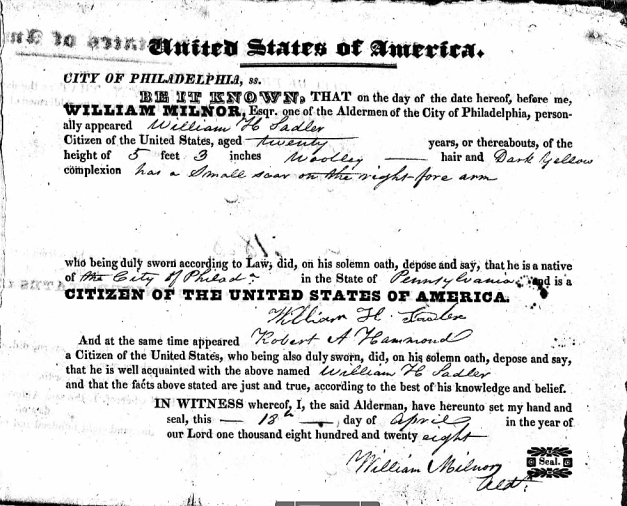 United States of America.
CITY OF PHILADELPHIA, ss.
BE IT KNOWN, THAT on the day of the date hereof, before me,
WILLIAM MILNOR, Esqr. one of the Aldermen of the City of Philadelphia, person-
ally appeared William H Sadler
Citizen of the United States, aged twenty years, or thereabouts, of the
height of 5 feet 3 inches Woolley hair and Dark Yellow
complexion has a Small scar on the right fore arm
who being duly sworn according to Law, did, on his solemn oath, depose and say, that he is a native
of the City of Philada. in the State of Pennsylvania, and is a
CITIZEN OF THE UNITED STATES OF AMERICA.
William H. Sadler
And at the same time appeared Robert A Hammond
a Citizen of the United States, who being also duly sworn, did, on his solemn oath, depose and say,
that he is well acquainted with the above named William H Sadler
and that the facts above stated are just and true, according to the best of his knowledge and belief.
IN WITNESS whereof, I, the said Alderman, have hereunto set my hand and
seal, this — 18th — day of April in the year of
our Lord one thousand eight hundred and twenty eight
William Milnor Seal.
Aldn.